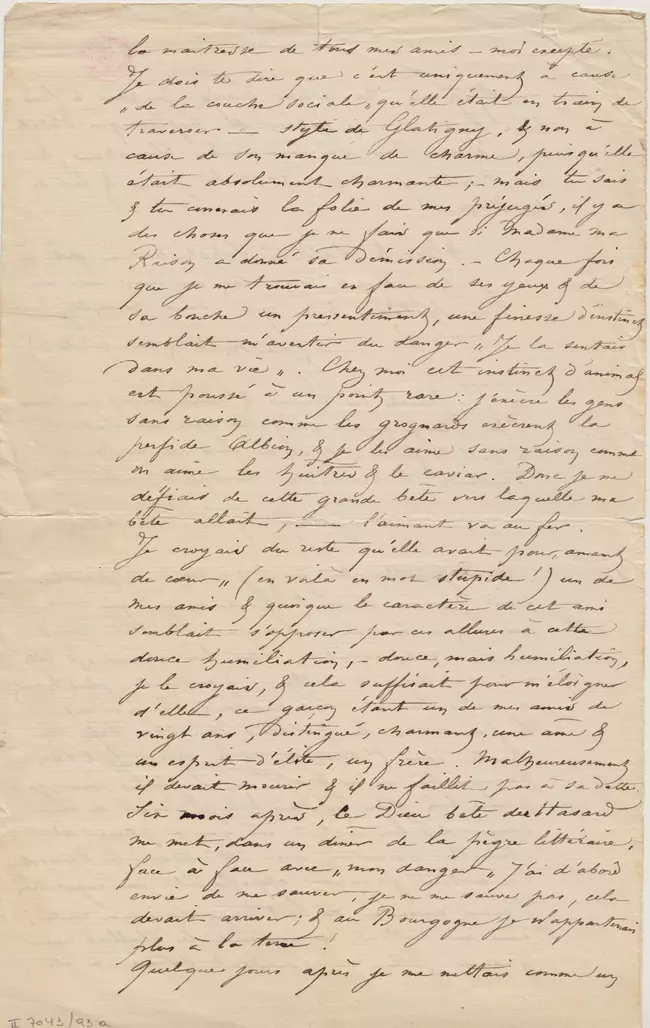 la maitresse de tous mes amis – moi excepté.
Je dois te dire que c'est uniquement à cause
„de la couche sociale„ qu'elle était en train de
traverser — style de Glatigny, & non à
cause de son manque de charme, puisqu'elle
était absolument charmante ; – mais tu sais
& tu connais la folie de mes préjugés, il y a
des choses que je ne fais que si Madame ma
Raison a donné sa Démission. – Chaque fois
que je me trouvais en face de ses yeux & de
sa bouche un pressentiment, une finesse d'instinct
semblait m'avertir du danger „Je la sentais
dans ma vie„. Chez moi cet instinct d'animal
est poussé à un point rare : j'exècre les gens
sans raison comme les grognards exècrent la
perfide Albion, & je les aime sans raison comme
on aime les huitres & le caviar. Donc je me
défiais de cette grande bête vers laquelle ma
bête allait, —— l'aimant va au fer.
Je croyais du reste qu'elle avait pour „amant
de cœur„ (en voilà un mot stupide !) un de
mes amis & quoique le caractère de cet ami
semblait s'opposer par ses allures à cette
douce humiliation, – douce, mais humiliation,
je le croyais, & cela suffisait pour m'éloigner
d'elle, ce garçon étant un de mes amis de
vingt ans, distingué, charmant, une âme &
un esprit d'élite, un frère. Malheureusement
il devait mourir & il ne faillit pas à sa dette.
Six mois après, le Dieu bête du Hasard
me met, dans un dîner de la pègre littéraire,
face à face avec „mon danger„ J'ai d'abord
envie de me sauver, je ne me sauve pas, cela
devait arriver ; & au Bourgogne je n'appartenais
plus à la terre !
Quelques jours après je me mettais comme un
II 7043/93 a